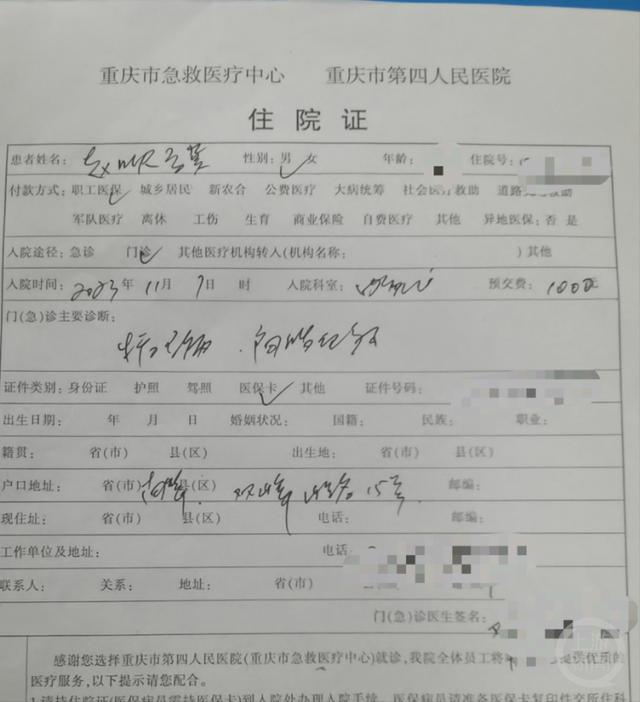 重庆市急救医疗中心 重庆市第四人民医院
住院证
患者姓名： 性别：男 女 年龄： 住院号：
付款方式：职工医保 城乡居民 新农合 公费医疗 大病统筹 社会医疗救助 道路 救助
军队医疗 离休 工伤 生育 商业保险 自费医疗 其他 异地医保：否 是
入院途径：急诊 门诊 其他医疗机构转入（机构名称： ）其他
入院时间：2023年 11月 7日 时 入院科室： 预交费：1000元
门（急）诊主要诊断：
证件类别：身份证 护照 驾照 医保卡 其他 证件号码：
出生日期： 年 月 日 婚姻状况： 国籍： 民族： 职业：
籍贯： 省（市） 县（区） 出生地： 省（市） 县（区）
户口地址： 省（市） 县（区） 15号 邮编：
现住址： 省（市） 县（区） 电话： 邮编：
工作单位及地址： 电话
联系人： 关系： 地址： 省（市）
门（急）诊医生签名：
感谢您选择重庆市第四人民医院（重庆市急救医疗中心）就诊，我院全体员工将 提供优质的
医疗服务，以下提示请您配合。
1.请持住院证（医保病员需持医保卡）到入院处办理入院手续，医保病员请准备医保卡复印件交所住科